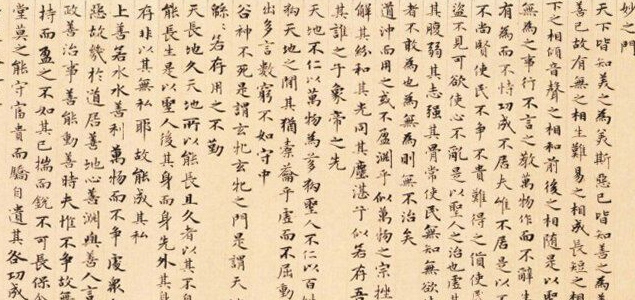 妙之門
天下皆知美之為美斯惡已皆知善之為
善已故有無之相生難易之相成長短之相
下之相傾音聲之相和前後之相随是以聖
無為之事行不言之教萬物作而不辭生
有為而不恃功成不居夫惟不居是以不
不尚賢使民不爭不貴難得之貨使民
盜不見可欲使心不亂是以聖人之治也虛其
其腹弱其志强其骨常使民無知無欲使
者不敢為也為無為則無不治矣
道沖而用之或不盈淵乎似萬物之宗挫
解其紛和其光同其塵湛乎似若存吾
其誰之子象帝之先
天地不仁以萬物為芻狗聖人不仁以百姓
狗天地之間其猶橐籥乎虛而不屈動
出多言數窮不如守中
谷神不死是謂玄牝玄牝之門是謂天地
緜若存用之不勤
天長地久天地所以能長且久者以其不自
能長生是以聖人後其身而身先外其身
存非以其無私耶故能成其私
上善若水水善利萬物而不爭處衆
惡故幾於道居善地心善淵與善人言
政善治事善能動善時夫惟不爭故無
持而盈之不如其已揣而銳不可長保金
堂莫之能守富貴而驕自遺其咎功成